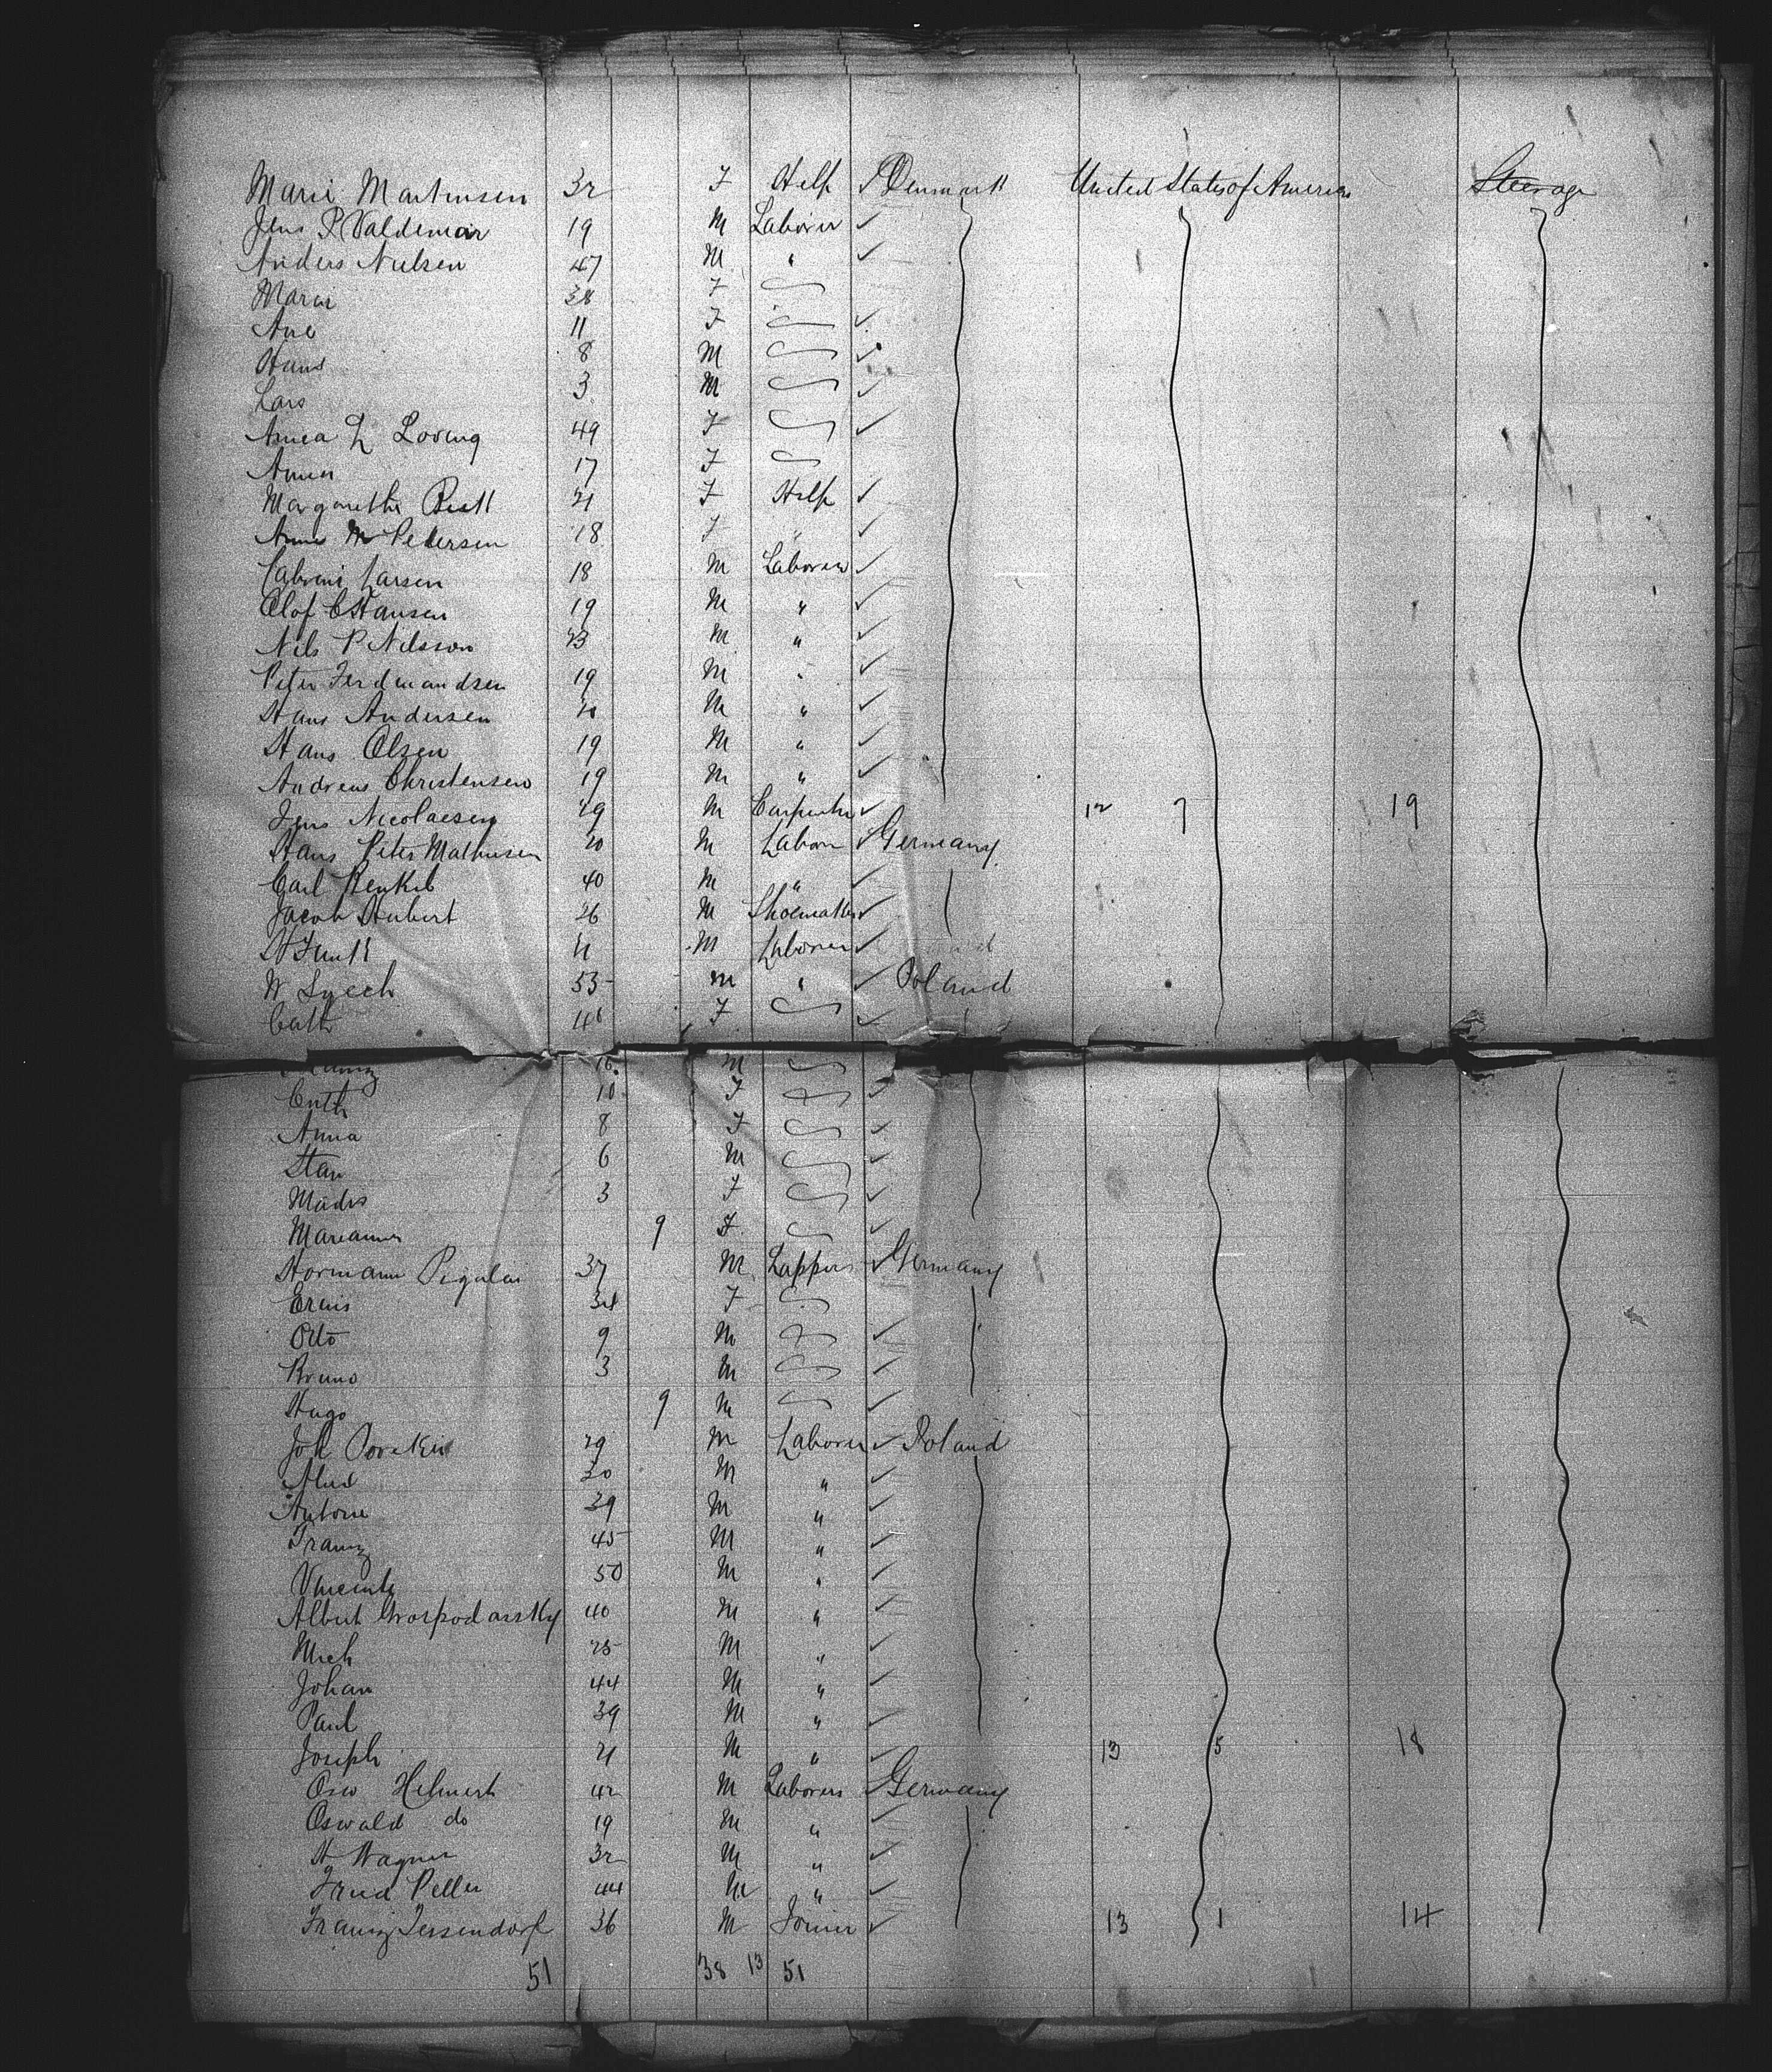 Marie Martensen 32 F Help ✓ Denmark United States of America Steerage
Jens P Valdemar 19 M Laborer ✓
Anders Nielsen 47 M " ✓
Marie 38 F
Ane 11 F ✓
Hans 8 M ✓
Lars 3 M ✓
Anna 49 F ✓
Anna 17 F
Margarethe 21 F Help ✓
Anne M Petersen 18 F " ✓
Larsen 18 M Laborer ✓
Olof C Hansen 19 M " ✓
Nils P Nilsson 23 M " ✓
Peter Ferdinandsen 19 M " ✓
Hans Andersen 20 M " ✓
Hans Olsen 19 M " ✓
Andreas Christensen 19 M " ✓
Jens Nicolaesen 29 M Carpenter ✓ 12 7 19
Hans Peter Mathiesen 20 M Labor ✓ Germany
Carl Henkel 40 M " ✓
Jacob Hubert 26 M Shoemaker ✓
H Funk M Laborer ✓
W 53 M " ✓ Poland
Cath 46 F ✓
16 M
Cath 10 F ✓
Anna 8 F ✓
Stan 6 M ✓
3 F ✓
Marianna 9 F ✓
Hermann 37 M ✓ Germany
34 F
Otto 9 M ✓
Bruno 3 M ✓
Hugo 9 M ✓
Joh 29 M Laborer ✓ Poland
20 M " ✓
Antone 39 M " ✓
Franz 45 M " ✓
Vincenty 50 M " ✓
Albert Grospodarsky 40 M " ✓
Mich 25 M " ✓
Johan 44 M " ✓
Paul 39 M " ✓
Joseph 21 M " ✓ 13 5 18
Osw Helmert 42 M Laborer Germany
Oswald do 19 M " ✓
H Wagner 32 M " ✓
Fried Peller 44 M " ✓
Franz Jessendorf 36 M Joiner ✓ 13 1 14
51 38 13 51